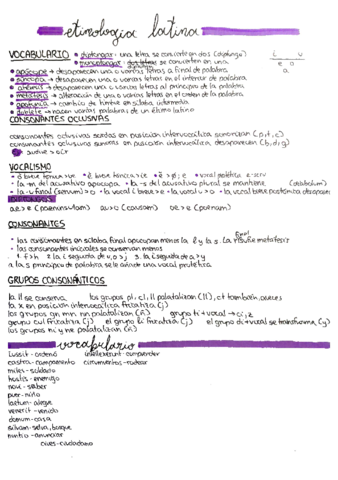 etimología latina
VOCABULARIO • diptongar: una letra se convierte en dos (diptongo) i u
• monoptongar: dos letras se convierten en una e o
• apócope → desaparecen una o varias letras a final de palabra a
• síncopa → desaparecen una o varias letras en el interior de palabra
• aféresis → desaparecen una o varias letras al principio de la palabra
• metátesis → alteración de una o varias letras en el orden de la palabra
• apofonía → cambio de timbre en sílaba intermedia
• doblete → nacen varias palabras de un étimo latino
CONSONANTES OCLUSIVAS
consonantes oclusivas sordas en posición intervocálica sonorizan (p,t,c)
consonantes oclusivas sonoras en posición intervocálica desaparecen (b,d,g)
VOCALISMO
• la -m del acusativo apocopa • la -s del acusativo plural se mantiene
ae > e (paeninsulam) au > o (causam) oe > e (poenam)
CONSONANTES
• las consonantes en sílaba final apocopan menos la l y la s. la r sufre metátesis
• las consonantes iniciales se conservan menos
a la s principio de palabra se le añade una vocal protética
GRUPOS CONSONÁNTICOS
la ll se conserva los grupos pl, cl, fl palatalizan (ll), ct también a veces
la x en posición intervocálica fricatiza (j)
los grupos gn, mn, nn palatalizan (ñ) grupo ti + vocal → ci, z
grupo cul fricatiza (j) el grupo li fricatiza (j) el grupo di + vocal se transforma (y)
los grupos ni y ne palatalizan (ñ)
vocabulario
iussit - ordenó intellexerunt - comprender
castra - campamento circumventus - rodear
miles - soldado
hostis - enemigo
novi - saber
puer - niño
laetum - alegre
venerit - venido
domum - casa
silvam - selva, bosque
nuntio - anunciar
cives - ciudadano